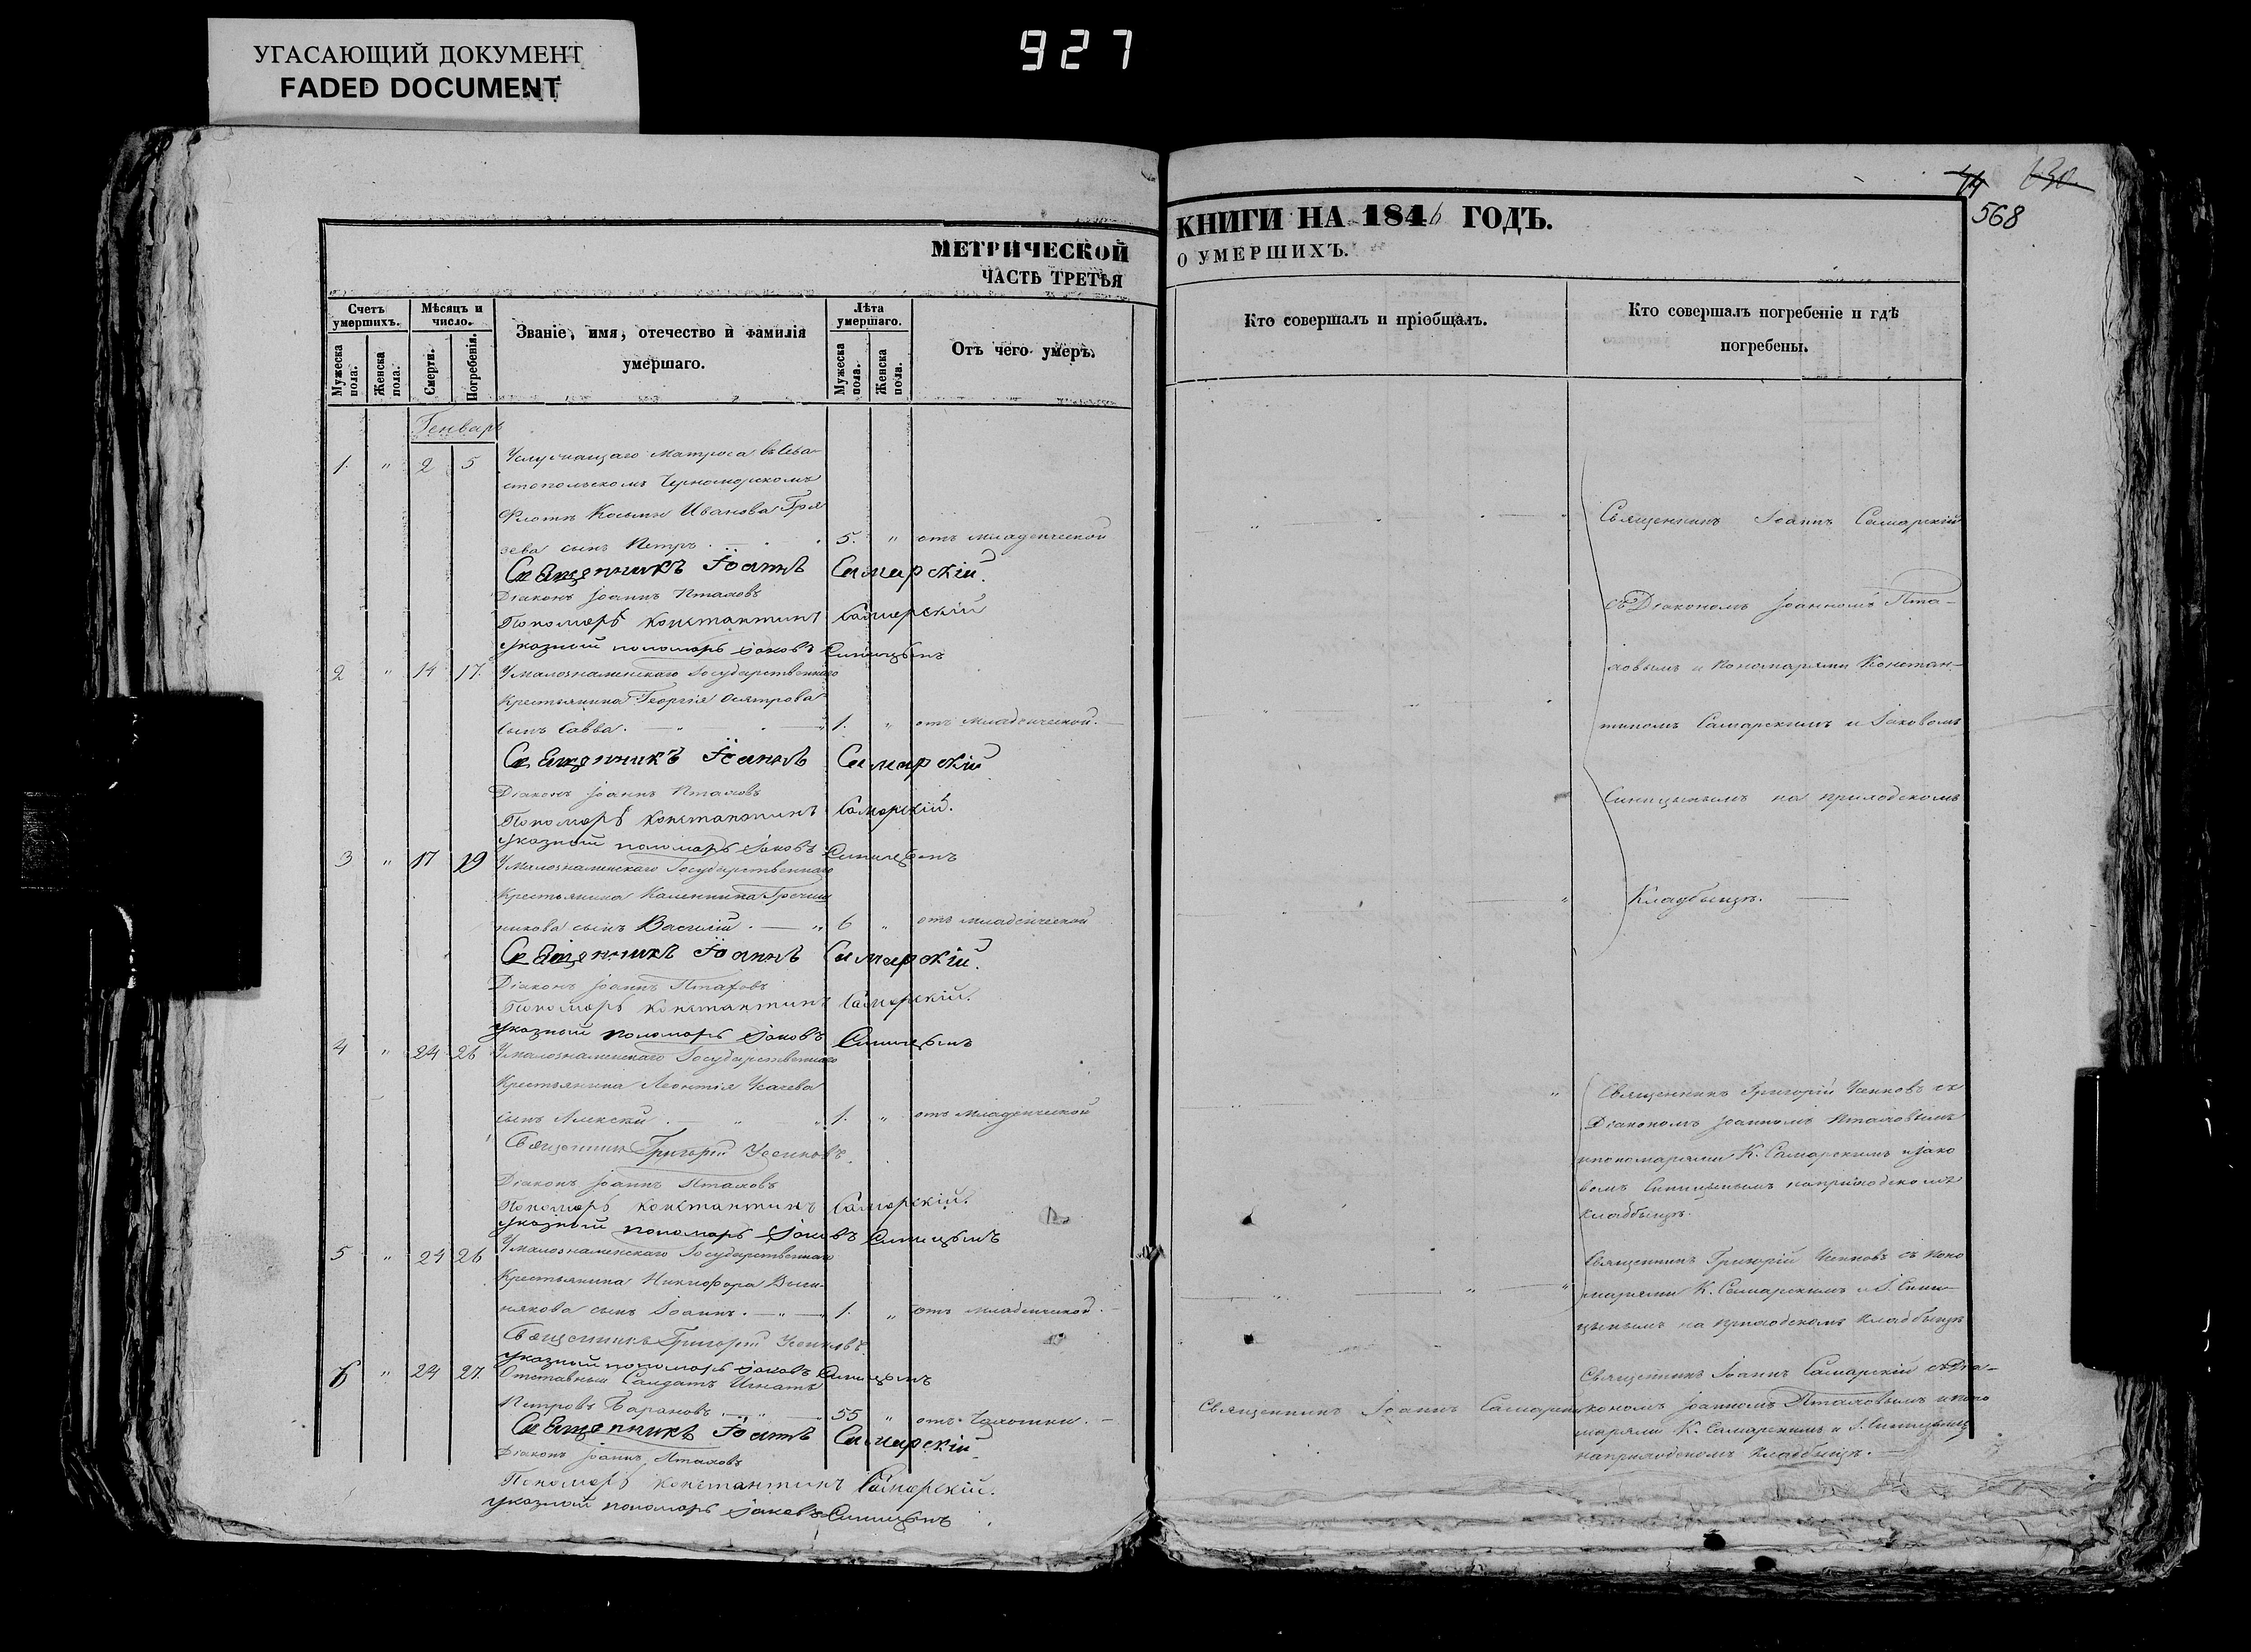 УГАСАЮЩИЙ ДОКУМЕНТ
FADED DOCUMENT
927
630
568
МЕТРИЧЕСКОЙ
ЧАСТЬ ТРЕТЬЯ
КНИГИ НА 1846 ГОДЪ.
О УМЕРШИХЪ.
Счетъ умершихъ.
Мужеска пола.
Женска пола.
Мѣсяцъ и число.
Смерти.
Погребенія.
Званіе, имя, отечество и фамилія
умершаго.
Лѣта умершаго.
Мужеска пола.
Женска пола.
Отъ чего умеръ.
Кто совершалъ и пріобщалъ.
Кто совершалъ погребеніе и гдѣ
погребены.
Генварь
1. " 2 5 Услужащаго Матроса въ Сева-
стопольскомъ Черноморскомъ
Флотѣ Косьмы Иванова Гря
зева сынъ Петръ. 5. " отъ младенческой
Священникъ Іоаннъ Самарскій.
Діаконъ Іоаннъ Птаховъ
Пономарь Константинъ Самарскій
указный пономарь Іаковъ Синицынъ
2 " 14 17. Умалознаменскаго Государственнаго
Крестьянина Георгія
сынъ Савва. 1. " отъ младенческой.
Священникъ Іоаннъ Самарскій
Діаконъ Іоаннъ Птаховъ
Пономарь Константинъ Самарскій.
указный пономарь Іаковъ Синицынъ
3 " 17 19 Умалознаменскаго Государственнаго
Крестьянина Калинника Гречиш
никова сынъ Василій. 6 " отъ младенческой
Священникъ Іоаннъ Самарскій.
Діаконъ Іоаннъ Птаховъ
Пономарь Константинъ Самарскій.
указный пономарь Іаковъ Синицынъ
4 " 24 26 Умалознаменскаго Государственнаго
Крестьянина Леонтія Усачева
сынъ Алексѣй. 1. " отъ младенческой
Священникъ Григорій Усенковъ.
Діаконъ Іоаннъ Птаховъ
Пономарь Константинъ Самарскій.
указный пономарь Іаковъ Синицынъ
5 " 24 26 Умалознаменскаго Государственнаго
Крестьянина Никифора
някова сынъ Іоаннъ. 1. " отъ младенческой.
Священникъ Григорій Усенковъ.
указный пономарь Іаковъ Синицынъ
6 " 24 27. Отставный Салдатъ Игнатъ
Петровъ Барановъ 55 " отъ Чахотки.
Священникъ Іоаннъ Самарскій
Діаконъ Іоаннъ Птаховъ
Пономарь Константинъ Самарскій.
указный пономарь Іаковъ Синицынъ
Священникъ Іоаннъ Самарскій
съ Діакономъ Іоанномъ Пта-
ховымъ и Пономарями Констан-
тиномъ Самарскимъ и Іаковомъ
Синицынымъ на приходскомъ
Кладбищѣ.
Священникъ Григорій Усенковъ съ
Діакономъ Іоанномъ Птаховымъ
и пономарями К. Самарскимъ и Іако
вомъ Синицынымъ на приходскомъ
кладбищѣ.
Священникъ Григорій Усенковъ съ Поно
марями К. Самарскимъ и І. Сини-
цынымъ на приходскомъ кладбищѣ
Священникъ Іоаннъ Самарскій
Священникъ Іоаннъ Самарскій съ Діа-
кономъ Іоанномъ Птаховымъ и поно
марями К. Самарскимъ и І. Синицынымъ
на приходскомъ кладбищѣ.